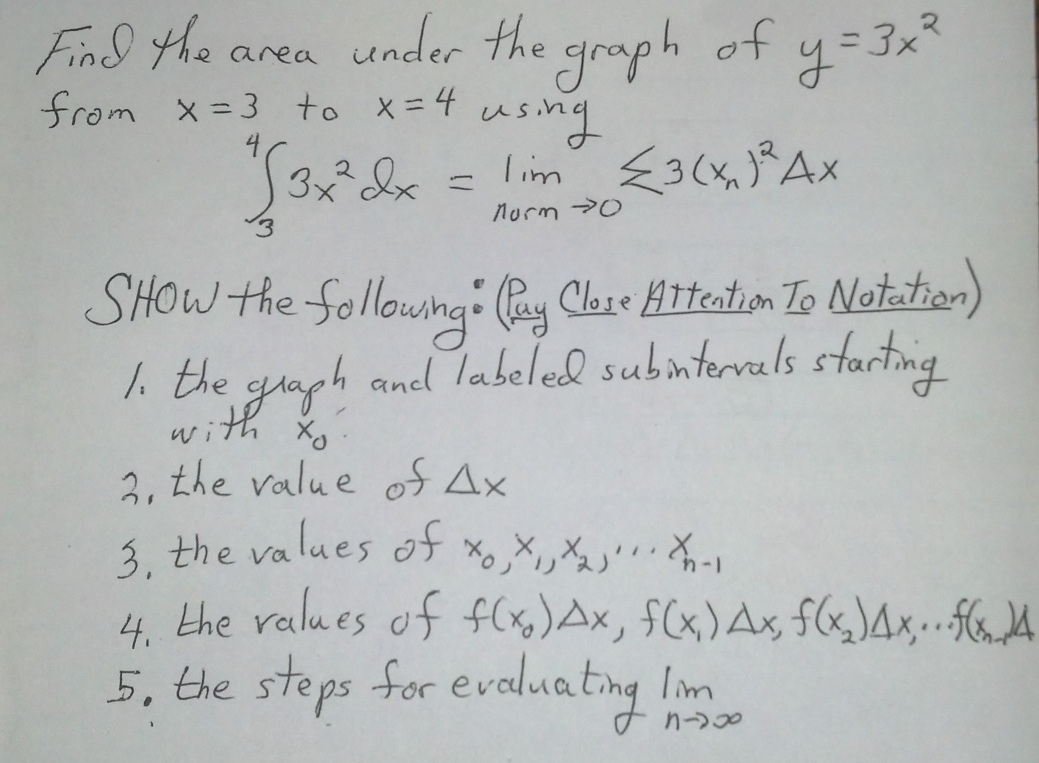 Find the area under the graph of y = 3x²
from x = 3 to x = 4 using
∫₃⁴ 3x² dx = lim norm →0 Σ3(xₙ)² Δx
SHOW the following: (Pay Close Attention To Notation)
1. the graph and labeled subintervals starting
with x₀.
2. the value of Δx
3. the values of x₀, x₁, x₂, ... xₙ₋₁
4. the values of f(x₀)Δx, f(x₁)Δx, f(x₂)Δx, ... f(xₙ₋₁)Δ
5. the steps for evaluating lim n→∞